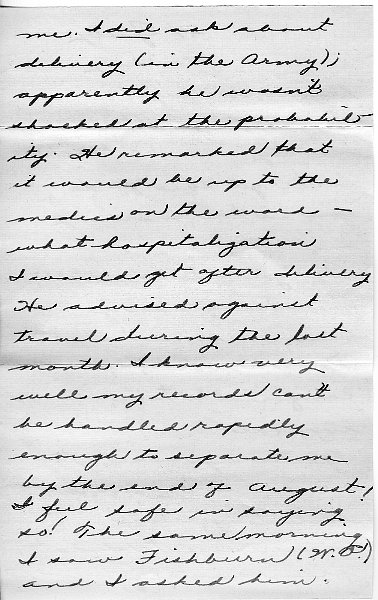 me. I did ask about
delivery (in the Army);
apparently he wasn't
shocked at the probabil-
ity. He remarked that
it would be up to the
medics on the ward —
what hospitalization
I would get after delivery
He advised against
travel during the last
month. I know very
well my records can't
be handled rapidly
enough to separate me
by the end of August!
I feel safe in saying
so! The same morning
I saw Fishburn (W.O.)
and I asked him.